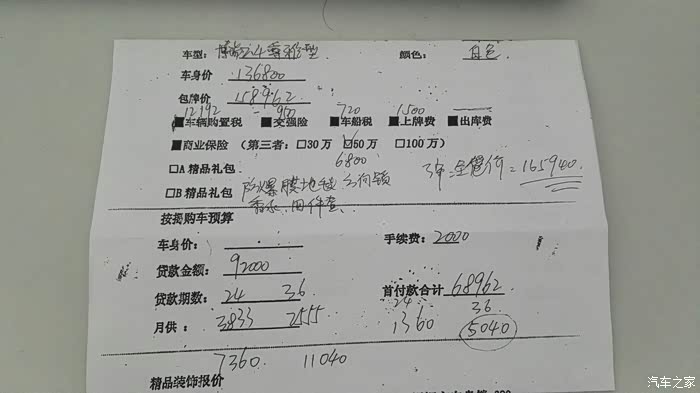 车型：博瑞2.4尊雅型 颜色：白色
车身价 136800
包牌价 158962
12192 950 720 1500
■车辆购置税 ■交强险 ■车船税 ■上牌费 ■出库费
■商业保险（第三者：□30万 ☑50万 □100万）
6800
□A精品礼包 3年=全包价=165940.
□B精品礼包 防爆膜地毯、方向锁
香水、四件套.
按揭购车预算
车身价： 手续费：2000
贷款金额：92000
贷款期数：24 36 首付款合计 68962
24 36
月供：3833 2555 1360 5040
7360. 11040
精品装饰报价
汽车之家